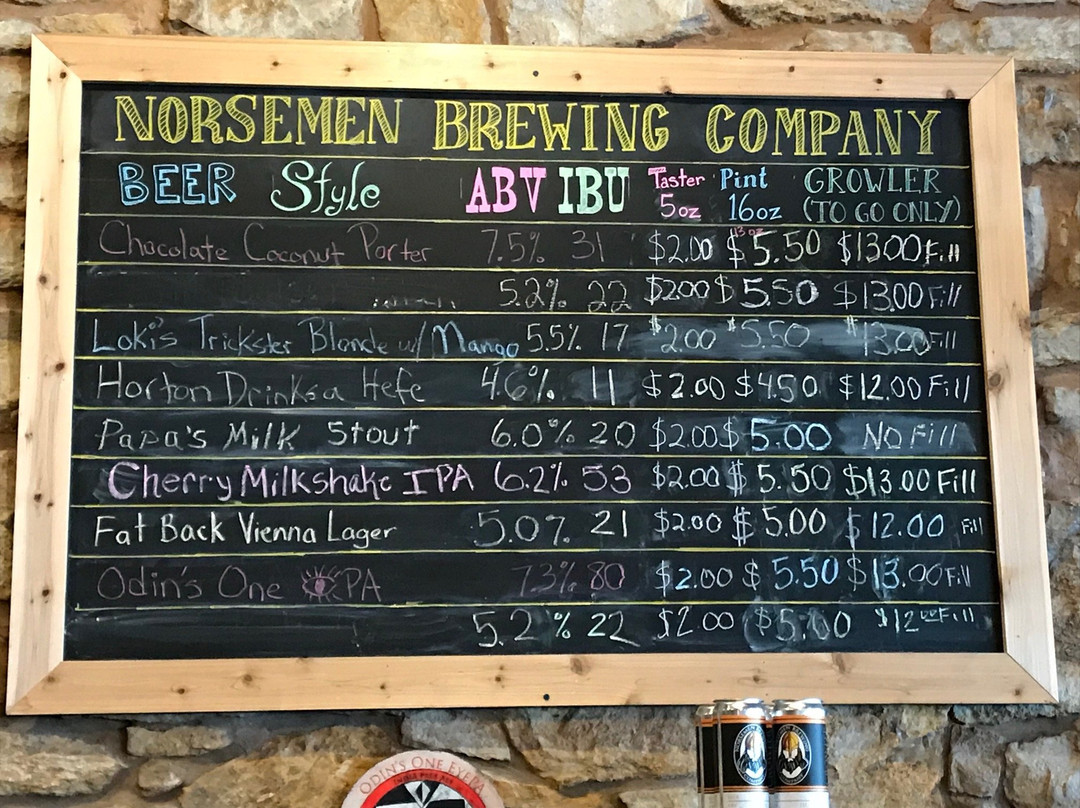 NORSEMEN BREWING COMPANY
BEER Style ABV IBU Taster 5oz Pint 16oz GROWLER (TO GO ONLY)
Chocolate Coconut Porter 7.5% 31 $2.00 13oz $5.50 $13.00 Fill
5.2% 22 $2.00 $5.50 $13.00 Fill
Loki's Trickster Blonde w/ Mango 5.5% 17 $2.00 $5.50 $13.00 Fill
Horton Drinks a Hefe 4.6% 11 $2.00 $4.50 $12.00 Fill
Papa's Milk Stout 6.0% 20 $2.00 $5.00 No Fill
Cherry Milkshake IPA 6.2% 53 $2.00 $5.50 $13.00 Fill
Fat Back Vienna Lager 5.0% 21 $2.00 $5.00 $12.00 Fill
Odin's One PA 7.3% 80 $2.00 $5.50 $13.00 Fill
5.2% 22 $2.00 $5.00 $12.00 Fill
ODIN'S ONE EYEPA